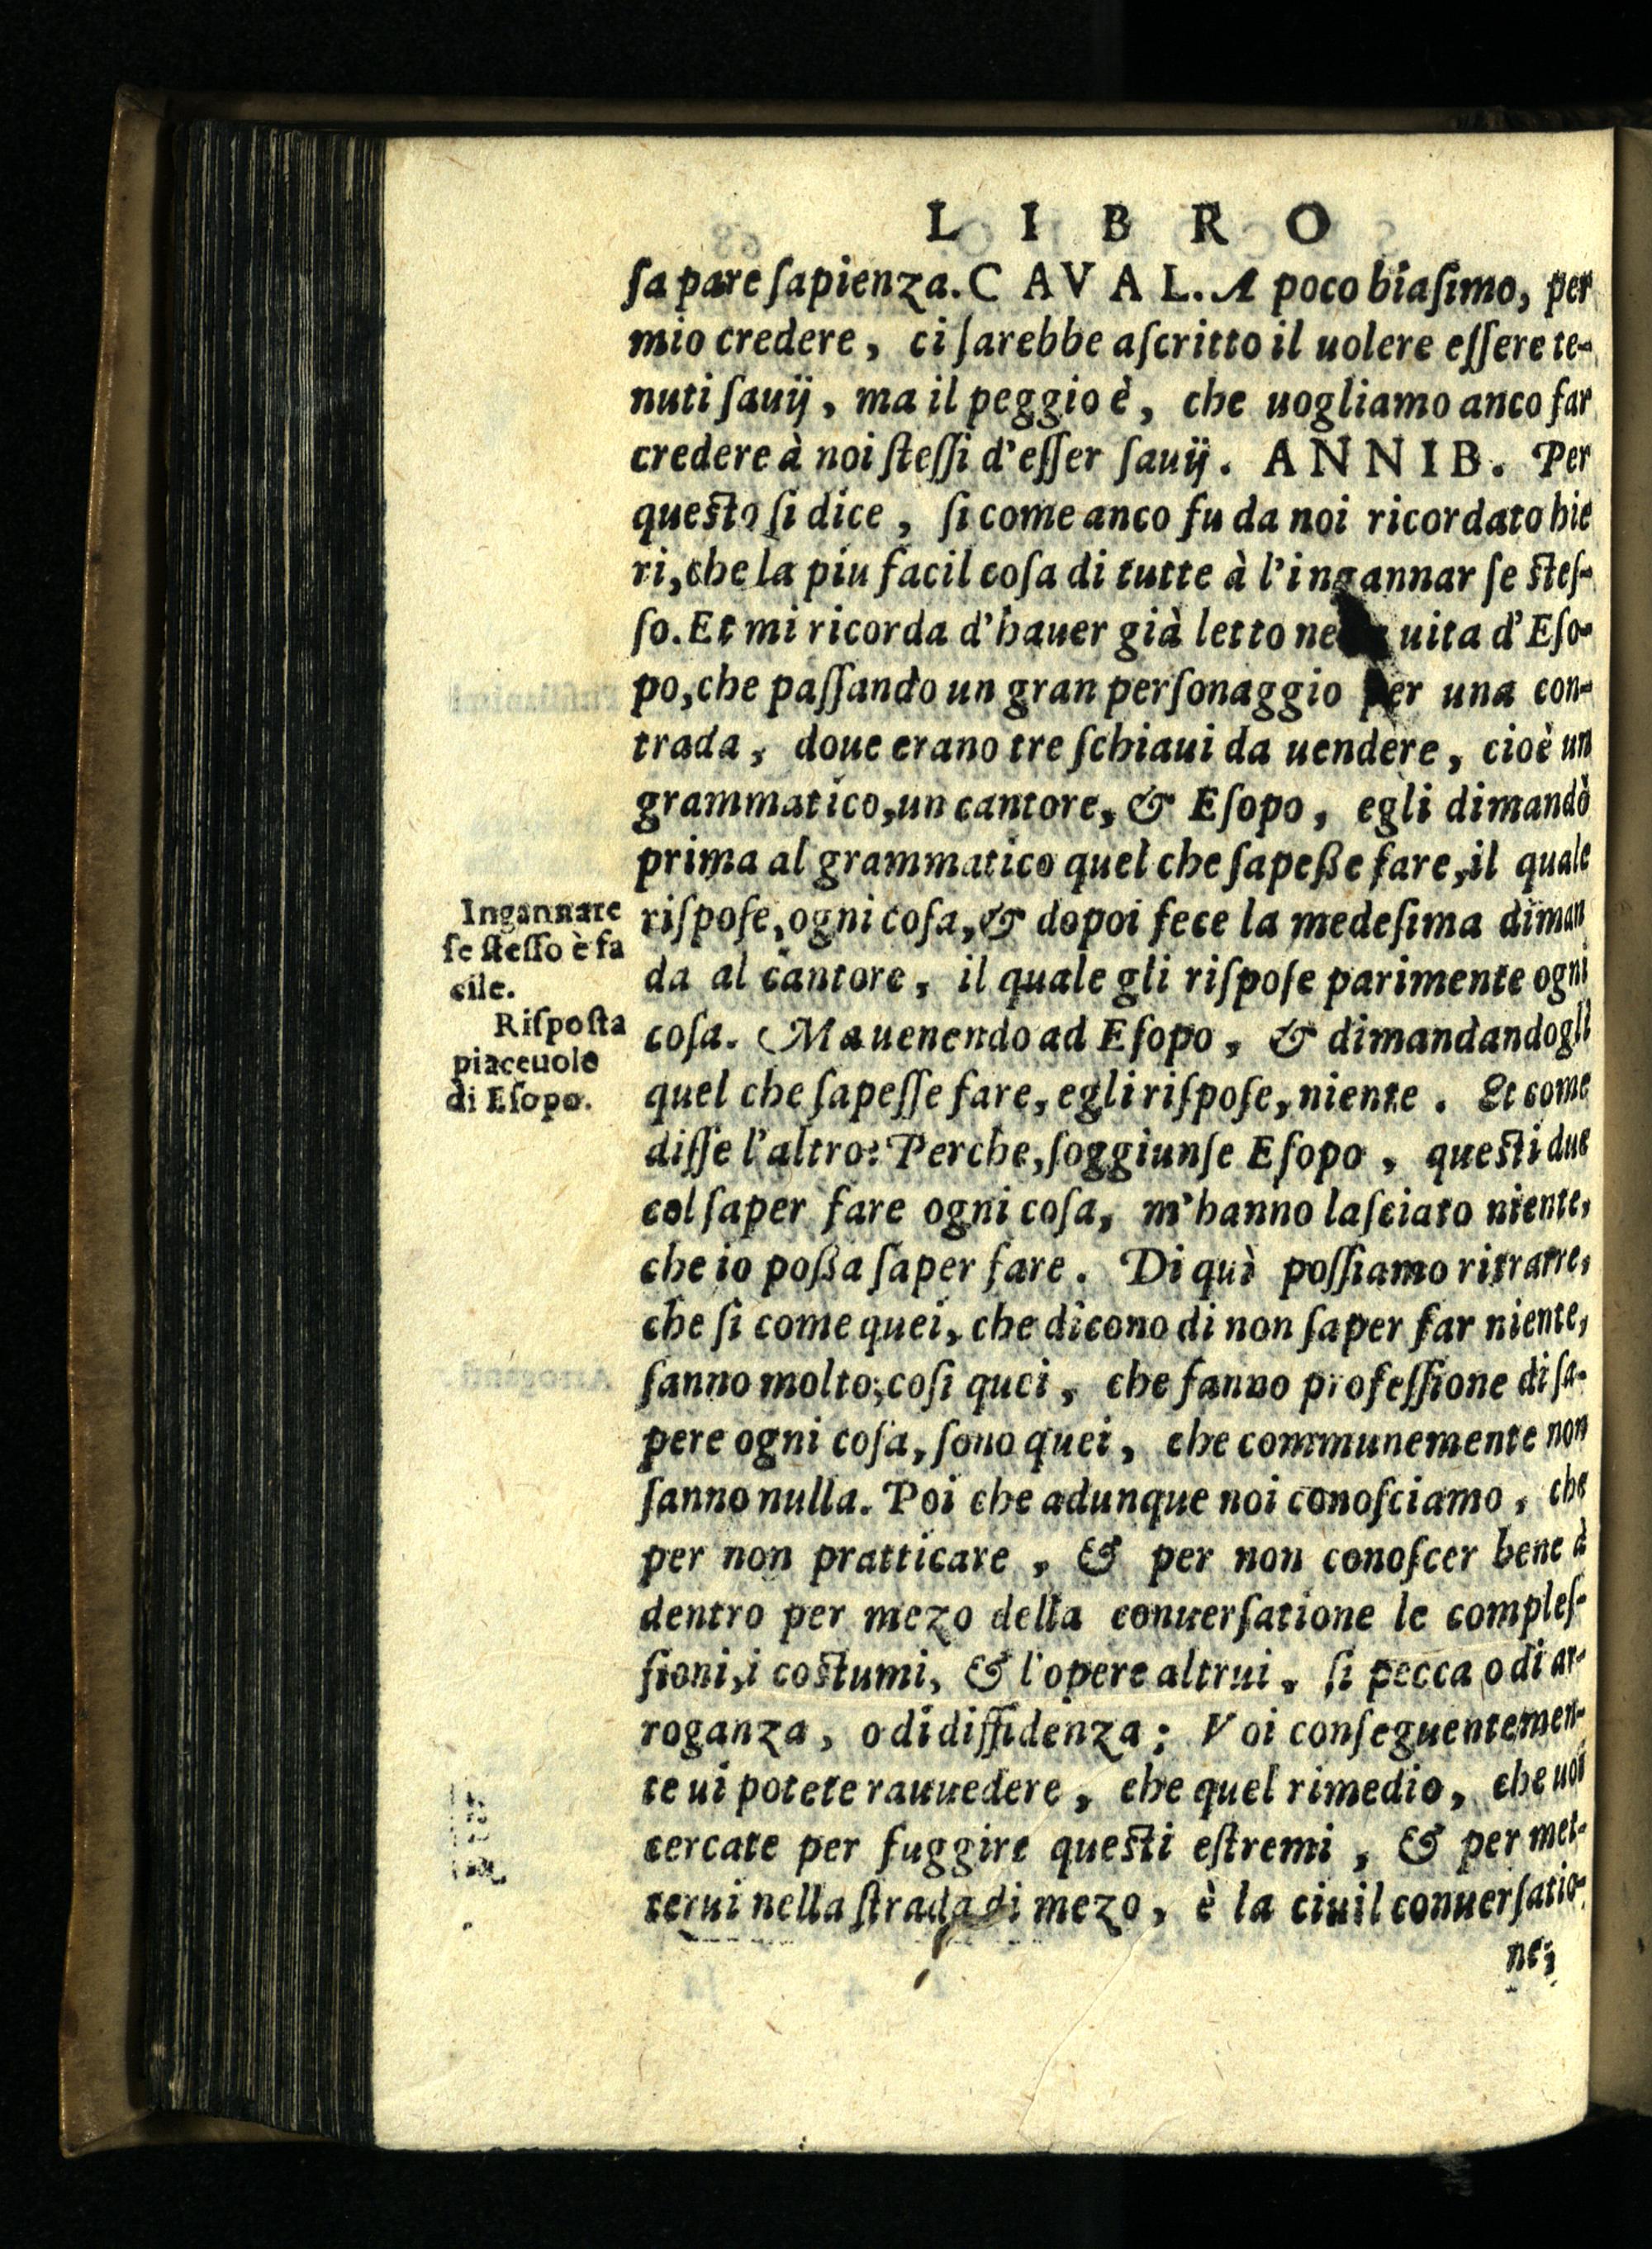 LIBRO
ſa pare ſapienza. CAVAL. A poco biaſimo, per
mio credere, ci ſarebbe aſcritto il uolere eſſere te-
nuti ſauij, ma il peggio è, che uogliamo anco far
credere à noi ſteſſi d'eſſer ſauij. ANNIB. Per
queſto ſi dice, ſi come anco fu da noi ricordato hie
ri, che la piu facil coſa di tutte à l'ingannar ſe ſteſ-
ſo. Et mi ricorda d'hauer già letto ne uita d'Eſo-
po, che paſſando un gran perſonaggio per una con-
trada, doue erano tre ſchiaui da uendere, cioè un
grammatico, un cantore, & Eſopo, egli dimandò
prima al grammatico quel che ſapeße fare, il quale
riſpoſe, ogni coſa, & dopoi fece la medeſima diman
da al cantore, il quale gli riſpoſe parimente ogni
coſa. Ma uenendo ad Eſopo, & dimandandogli
quel che ſapeſſe fare, egli riſpoſe, niente. Et come
diſſe l'altro? Perche, ſoggiunſe Eſopo, queſti due
col ſaper fare ogni coſa, m'hanno laſciato niente,
che io poßa ſaper fare. Di quì poſſiamo ritrarre,
che ſi come quei, che dicono di non ſaper far niente,
ſanno molto; coſi quei, che fanno profeſſione di ſa-
pere ogni coſa, ſono quei, che communemente non
ſanno nulla. Poi che adunque noi conoſciamo, che
per non pratticare, & per non conoſcer bene à
dentro per mezo della conuerſatione le compleſ-
ſioni, i coſtumi, & l'opere altrui, ſi pecca o di ar-
roganza, o di diffidenza; Voi conſeguentemen-
te ui potete rauuedere, che quel rimedio, che uoi
cercate per fuggire queſti eſtremi, & per met-
terui nella ſtrada di mezo, è la ciuil conuerſatio-
ne;
Ingannare
ſe ſteſſo è fa
cile.
Riſpoſta
piaceuole
di Eſopo.